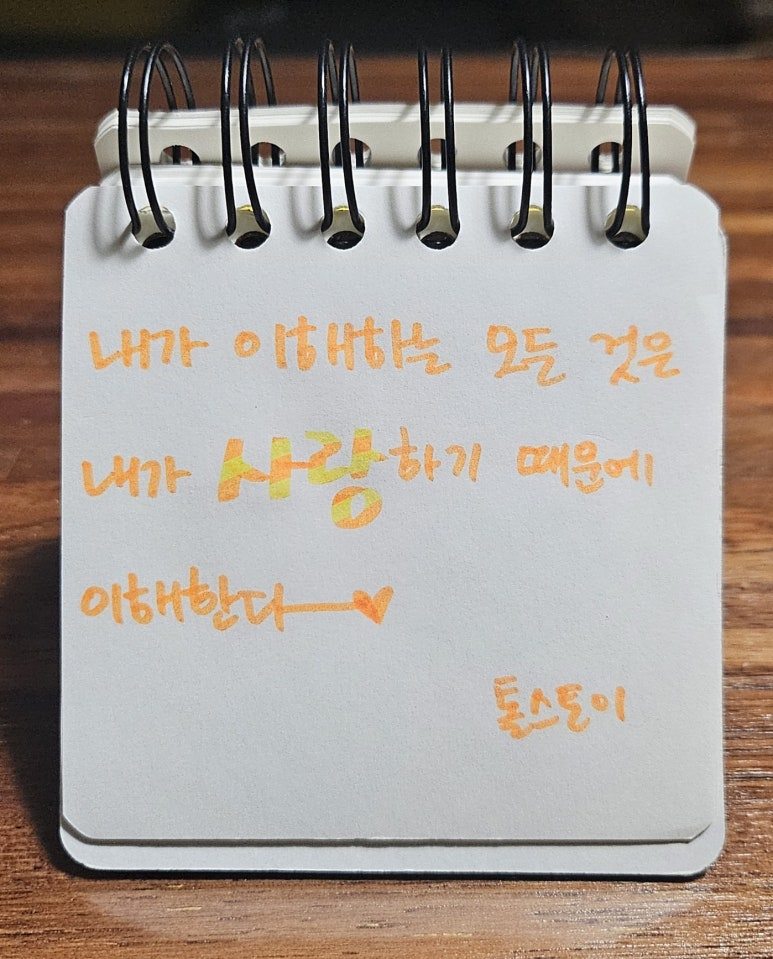 내가 이해하는 모든 것은
내가 사랑하기 때문에
이해한다
톨스토이